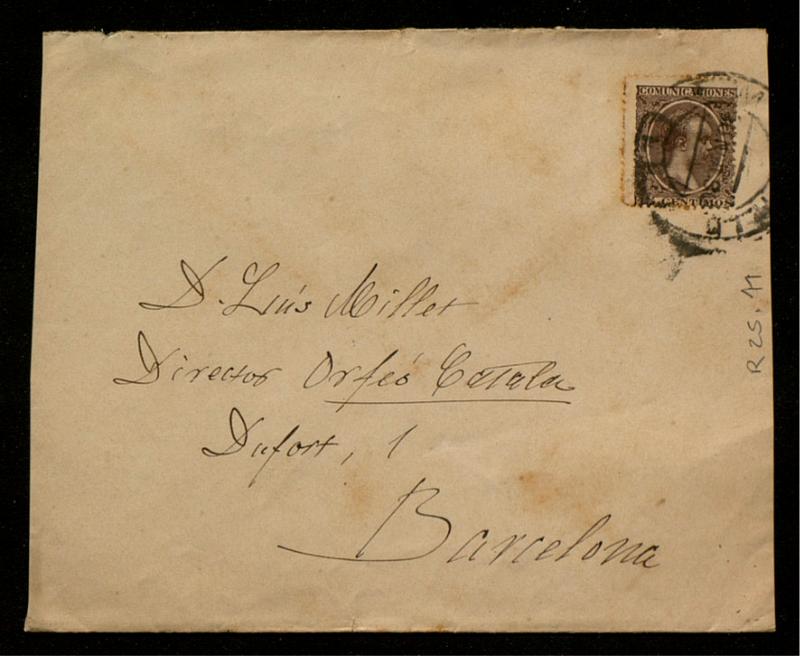 COMUNICACIONES
CENTIMOS
D. Lluis Millet
Director Orfeó Catala
Dufort, 1
Barcelona
R 25. 11